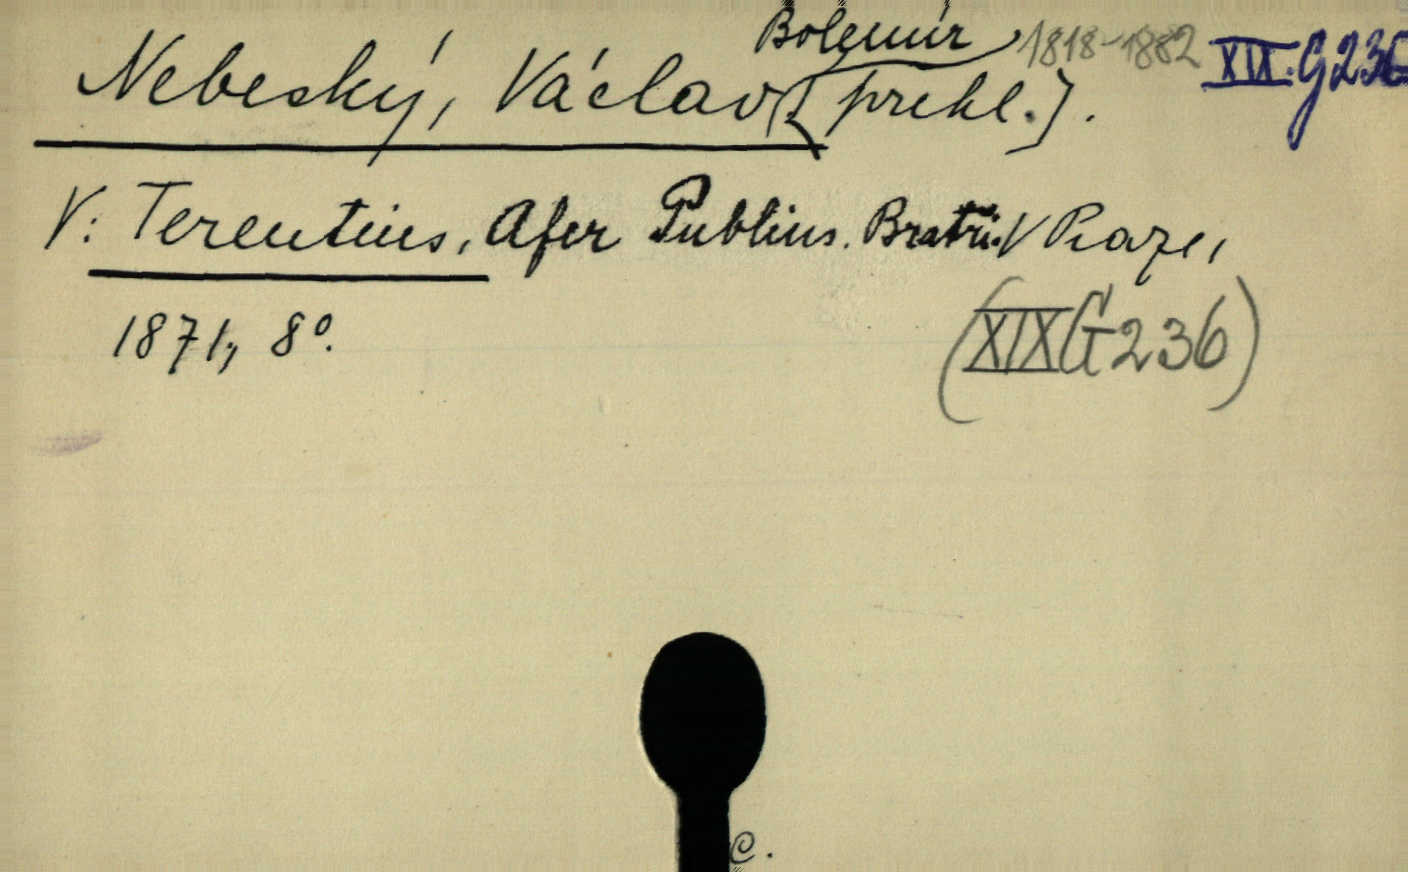 Bolemír 1818-1882 XIX.G236
Nebeský, Václav [prekl.].
V: Terentius, Afer Publius. Bratri. V Praze,
1871, 8°.
(XIX G 236)
C.